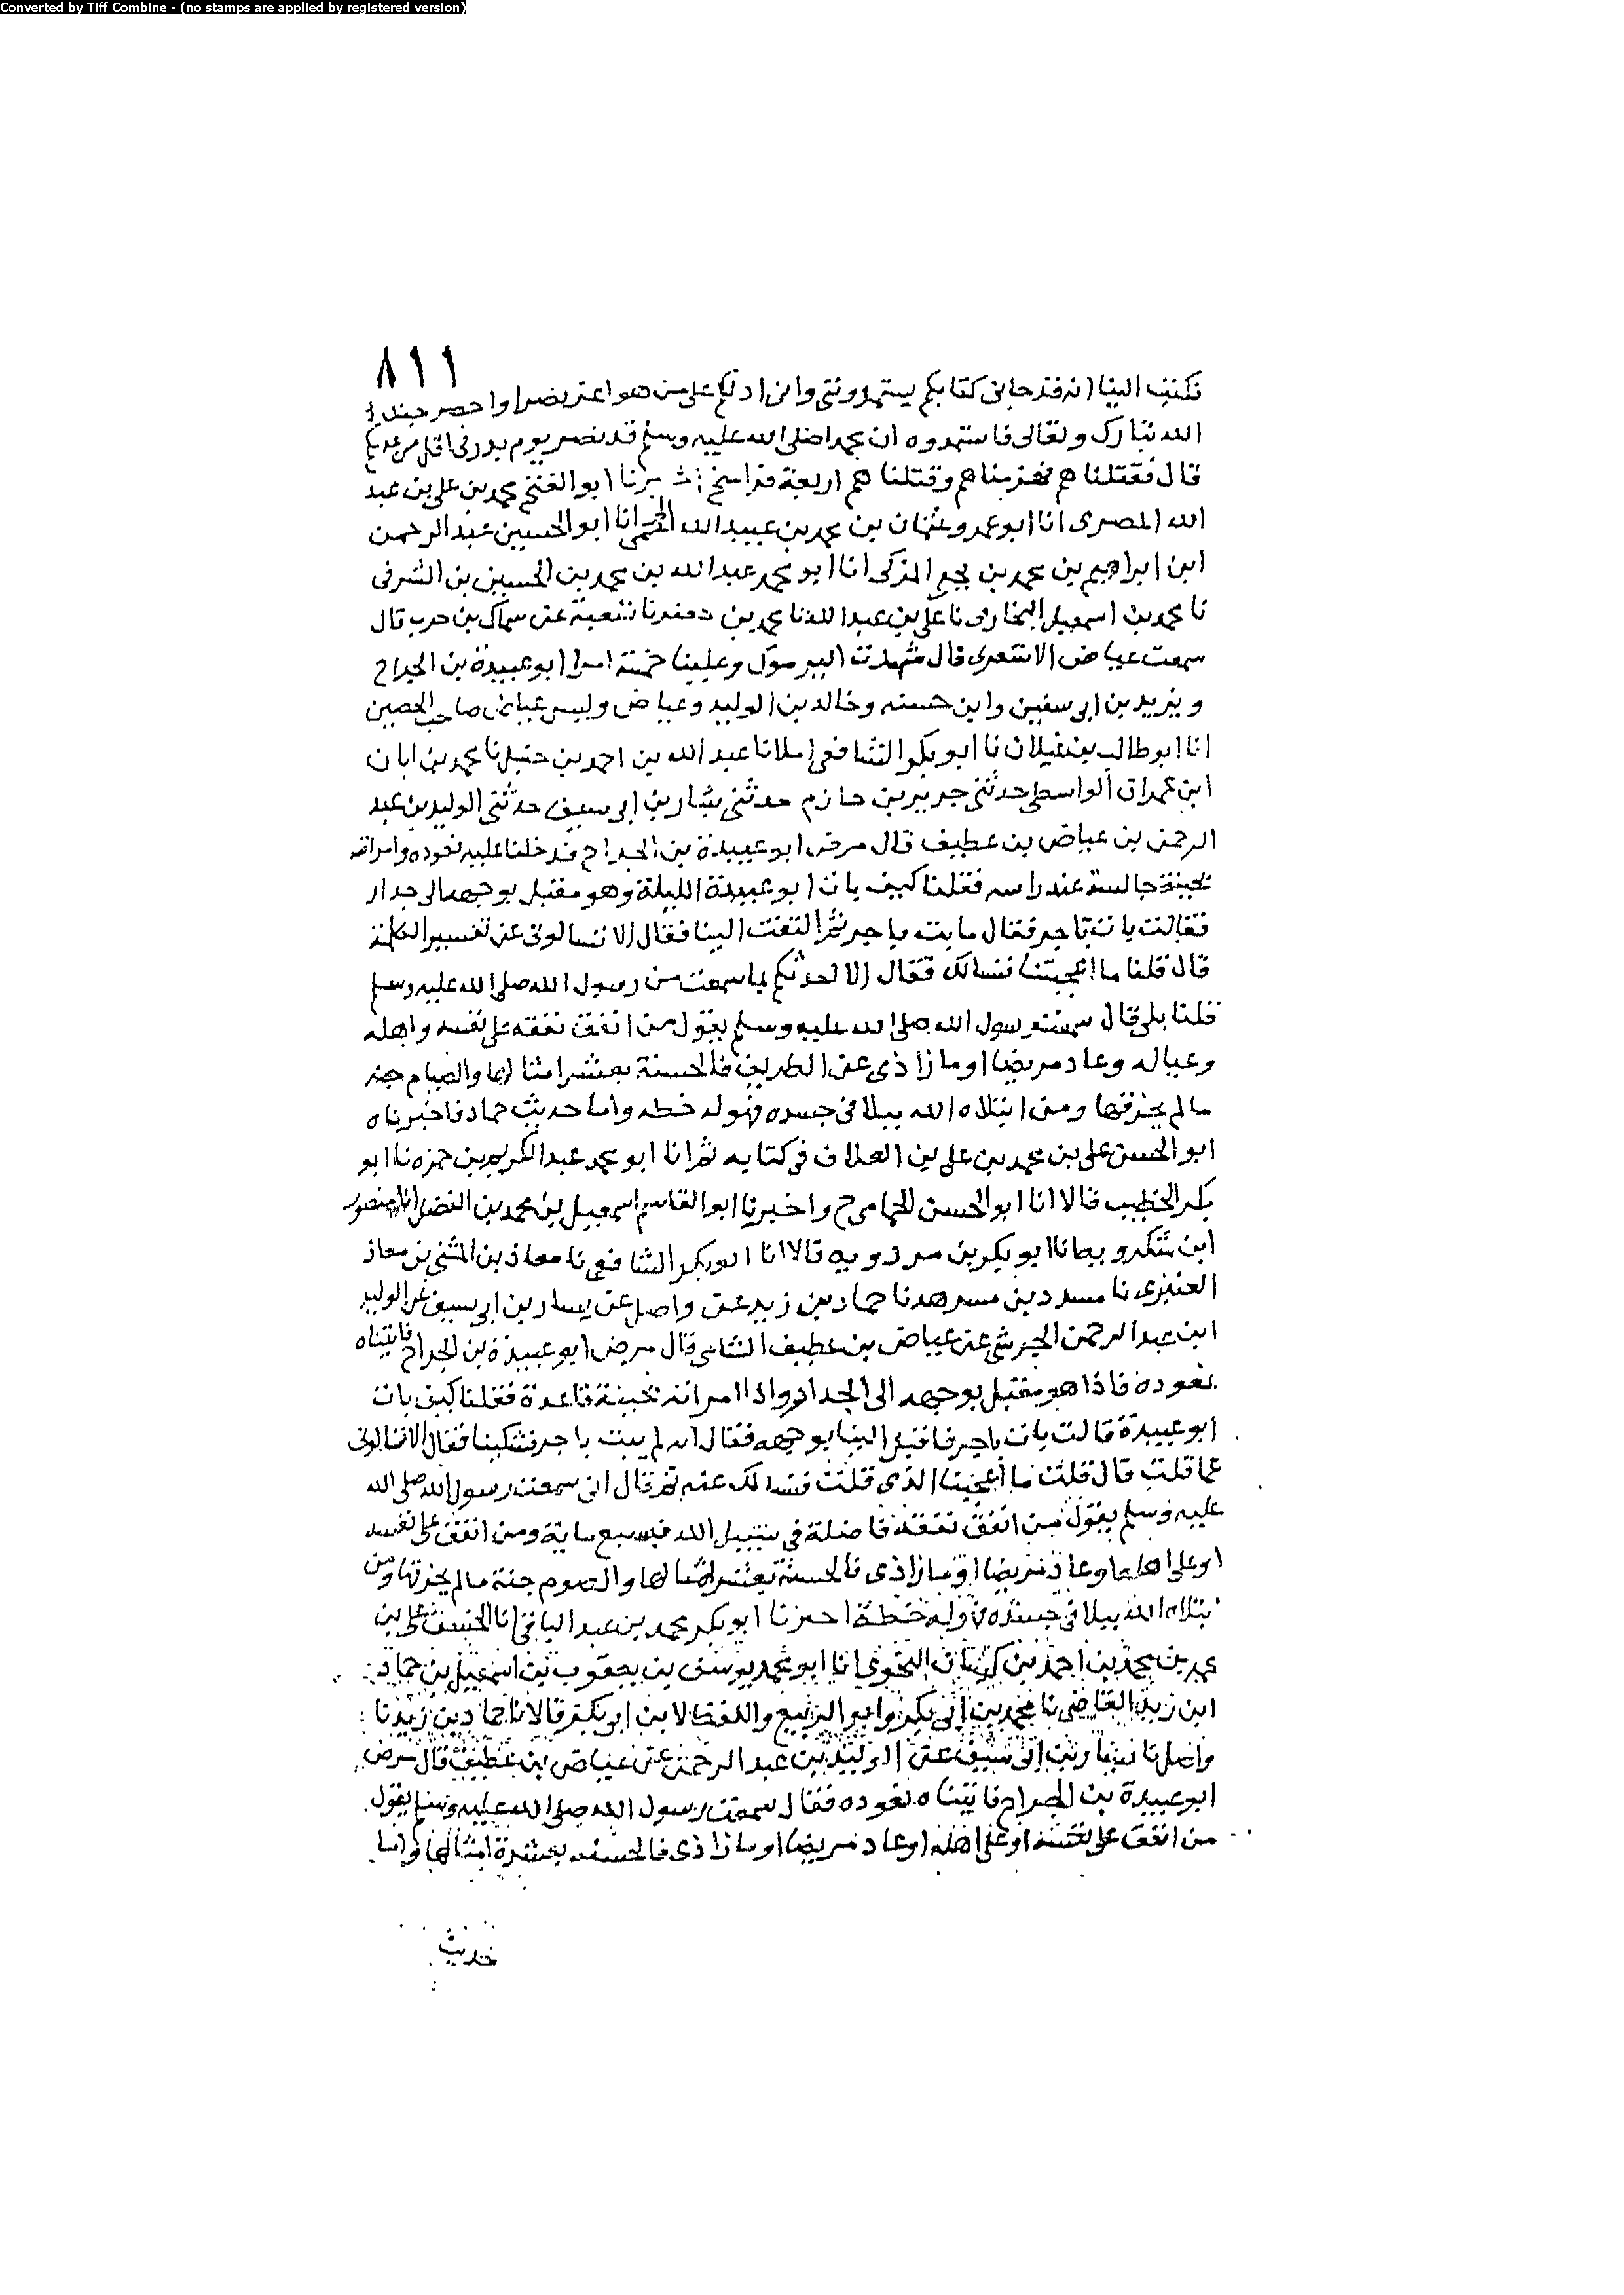 Converted by Tiff Combine - (no stamps are applied by registered version)
٨١١
فكتب الينا انه قد جانى كتابكم يستمدونى وانى ادلكم على من هو اعز نصرا واحصر جندا
الله تبارك وتعالى فاستمدوه ان محمدا صلى الله عليه وسلم قد نصر يوم بدر فى اقل من عدتكم
قال فقتلناهم فهزمناهم وقتلناهم اربعة فراسخ برنا ابو الفتح محمد بن على بن عبد
الله المصرى انا ابو عمرو عثمان بن محمد بن عبيد الله انا ابو الحسين عبد الرحمن
ابن ابراهيم بن محمد بن يحيى المزكى انا ابو محمد عبد الله بن محمد بن الحسين بن الشرفى
نا محمد بن اسمعيل البخارى نا على بن عبد الله نا محمد بن جعفر نا شعبة عن سماك بن حرب قال
سمعت عياض الاشعرى قال شهدت اليرموك وعلينا خمسة امرا ابو عبيدة بن الجراح
ويزيد بن ابى سفين وابن حسنه وخالد بن الوليد وعياض وليس عياض صاحب الحصين
انا ابو طالب بن غيلان نا ابو بكر الشافعى املا نا عبد الله بن احمد بن حنبل نا محمد بن ابان
ابن عمران الواسطى حدثنى جرير بن حازم حدثنى بشار بن ابى سيف حدثنى الوليد بن عبد
الرحمن بن عياض بن عطيف قال مرض ابو عبيدة بن الجراح فدخلنا عليه نعوده وامراته
نحيفة جالسة عند راسه فقلنا كيف بات ابو عبيدة الليلة وهو مقبل بوجهه الى جدار
فقالت بات باجر فقال ما بت باجر ثم التفت الينا فقال الا تسالونى عن تفسير الكلمة
قال قلنا ما اعجبتنا فنسالك فقال الا احدثكم بما سمعت من رسول الله صلى الله عليه وسلم
قلنا بلى قال سمعت رسول الله صلى الله عليه وسلم يقول من انفق نفقه على نفسه واهله
وعياله وعاد مريضا او ماز اذى عن الطريق فالحسنة بعشر امثالها والصيام جنه
ما لم يخرقها ومن ابتلاه الله ببلا فى جسده فهو له خطه واما حديث حماد فاخبرناه
ابو الحسن على بن محمد بن على بن العلاف فى كتابه ثم انا ابو محمد عبد الكريم بن حمزه نا ابو
بكر الخطيب قالا انا ابو الحسن الحمامى ح واخبرنا ابو القاسم اسمعيل بن محمد بن الفضل انا منصور
ابن شكرويه انا ابو بكر بن مردويه قالا انا ابو بكر الشافعى نا معاذ بن المثنى بن معاذ
العنبرى نا مسدد بن مسرهد نا حماد بن زيد عن واصل عن يسار بن ابى سيف عن الوليد
ابن عبد الرحمن الجرشى عن عياض بن عطيف الشامى قال مرض ابو عبيدة بن الجراح فاتيناه
نعوده فاذا هو مقبل بوجهه الى الجدار واذا امراته نحيفة قاعدة فقلنا كيف بات
ابو عبيدة قالت بات باجر فاقبل الينا بوجهه فقال انه لم يبت باجر فسكتنا فقال الا تسالونى
عما قلت قال قلت ما اعجبنا الذى قلت فنسالك عنه ثم قال انى سمعت رسول الله صلى الله
عليه وسلم يقول من انفق نفقة فاضلة فى سبيل الله فبسبع ماية ومن انفق على نفسه
او على اهله او عاد مريضا او ماز اذى فالحسنة بعشر امثالها والصوم جنة ما لم يخرقها ومن
ابتلاه الله ببلا فى جسده فهو له خطة اخبرنا ابو بكر محمد بن عبد الباقى انا الحسن على بن
محمد بن محمد بن احمد بن كيسان النحوى انا ابو محمد يوسف بن يعقوب بن اسمعيل بن حماد
ابن زيد القاضى نا محمد بن ابى بكر وابو الربيع واللفظ لابن ابو بكر قالا نا حماد بن زيد نا
واصل نا بشار بن ابى سيف عن الوليد بن عبد الرحمن عن عياض بن عطيف قال مرض
ابو عبيدة بن الجراح فاتيناه نعوده فقال سمعت رسول الله صلى الله عليه وسلم يقول
من انفق على نفسه او على اهله او عاد مريضا او ماز اذى فالحسنه بعشرة امثالها واما
حديث